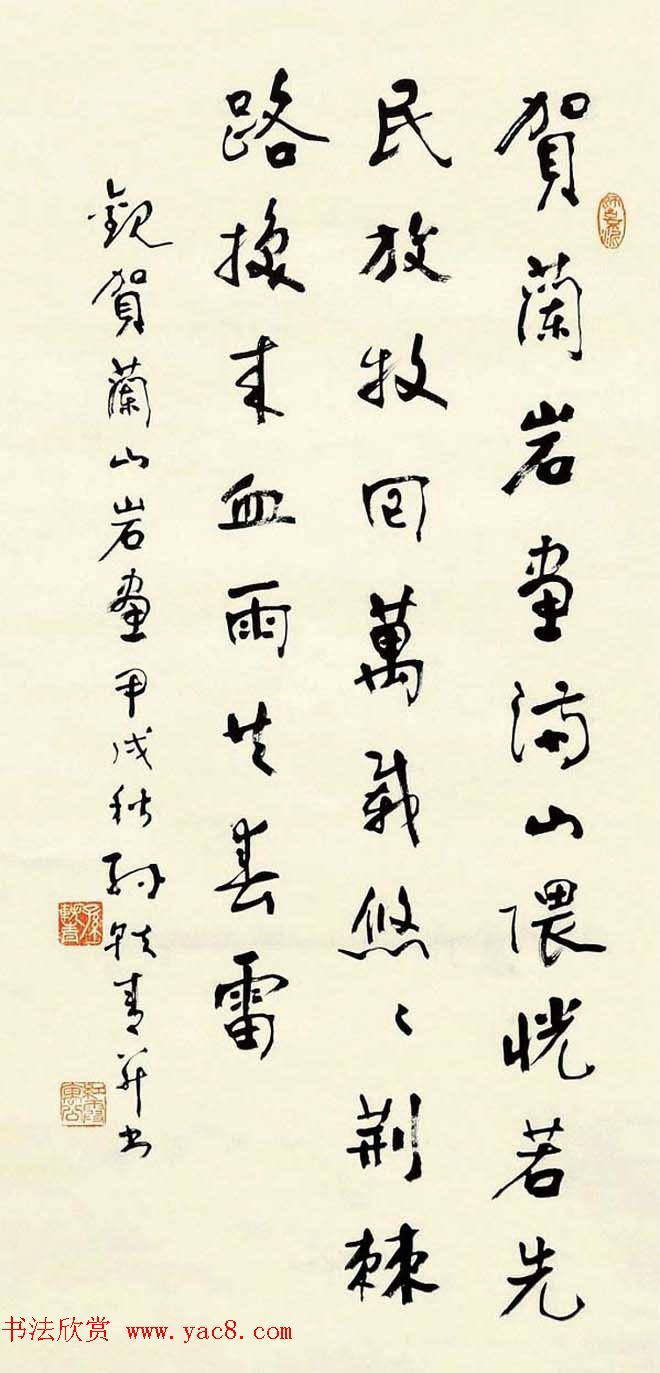 賀蘭岩畫滿山隈恍若先
民放牧回萬載悠〻荊棘
路換来血雨共春雷
觀賀蘭山岩畫甲戌秋孫軼青并書
孫軼青
书法欣赏 www.yac8.com